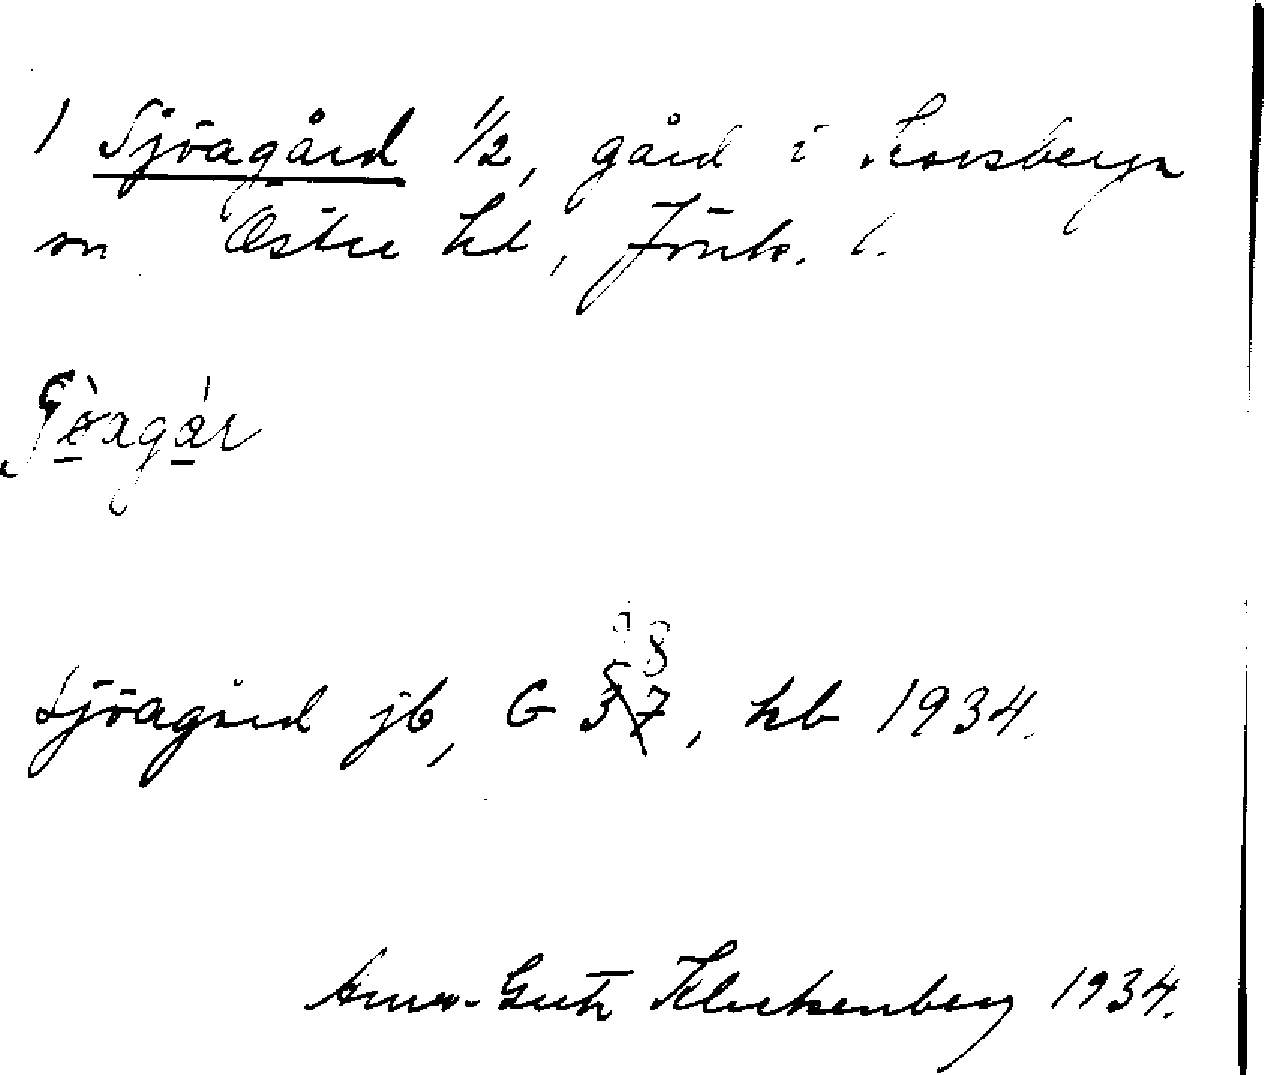 1 Sjöagård 1/2, gård i Korsberga
sn Östra hd, Jönk. l.
Sjöagård jb, G 37, hb 1934.
Anna-Greta Kluckenberg 1934.